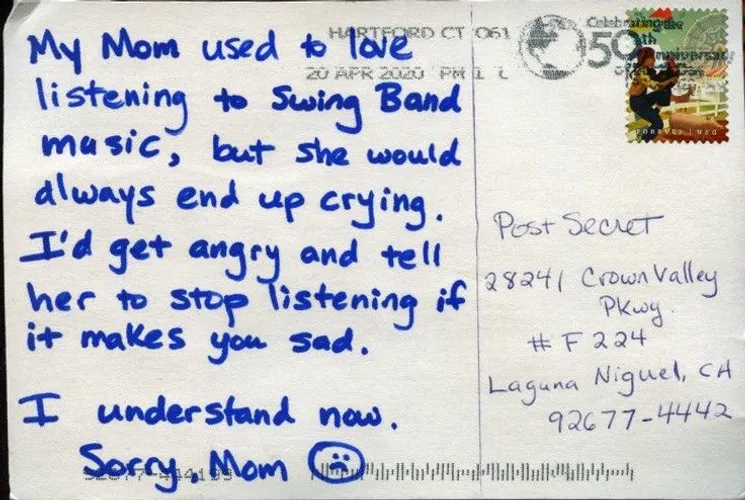 My Mom used to love
listening to Swing Band
music, but she would
always end up crying.
I'd get angry and tell
her to stop listening if
it makes you sad.
I understand now.
Sorry, Mom
HARTFORD CT 061
20 APR 2020 PM 1 L
Celebrating the
50th
Anniversary
FOREVER USA
Post Secret
28241 Crown Valley
Pkwy.
# F 224
Laguna Niguel, CA
92677-4442